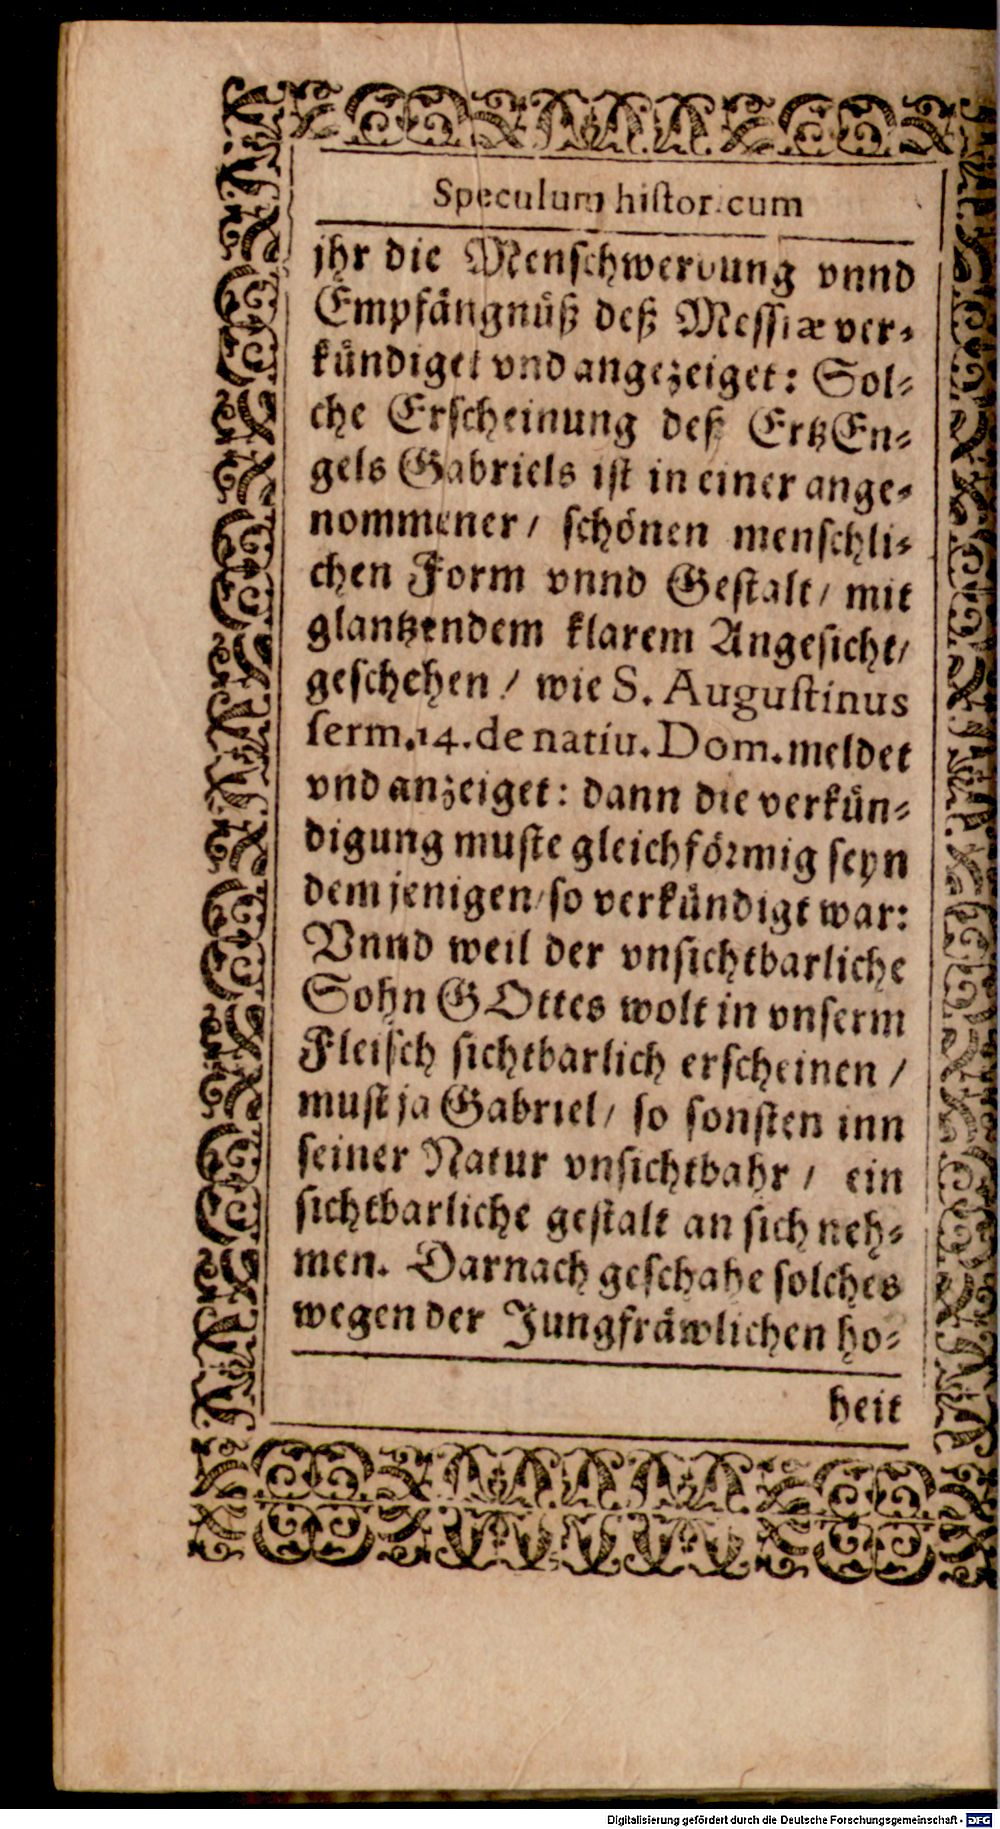 Speculum histor.cum
jhr die Menschwerdung vnnd
Empfängnüß deß Messiæ ver-
kündiget vnd angezeiget: Sol-
che Erscheinung deß ErtzEn-
gels Gabriels ist in einer ange-
nommener/ schönen menschli-
chen Form vnnd Gestalt/ mit
glantzendem klarem Angesicht/
geschehen/ wie S. Augustinus
serm.14.de natiu.Dom.meldet
vnd anzeiget: dann die verkün-
digung muste gleichförmig seyn
dem jenigen/so verkündigt war:
Vnnd weil der vnsichtbarliche
Sohn GOttes wolt in vnserm
Fleisch sichtbarlich erscheinen/
must ja Gabriel/ so sonsten inn
seiner Natur vnsichtbahr/ ein
sichtbarliche gestalt an sich neh-
men. Darnach geschahe solches
wegen der Jungfräwlichen ho-
heit
Digitalisierung gefördert durch die Deutsche Forschungsgemeinschaft - DFG